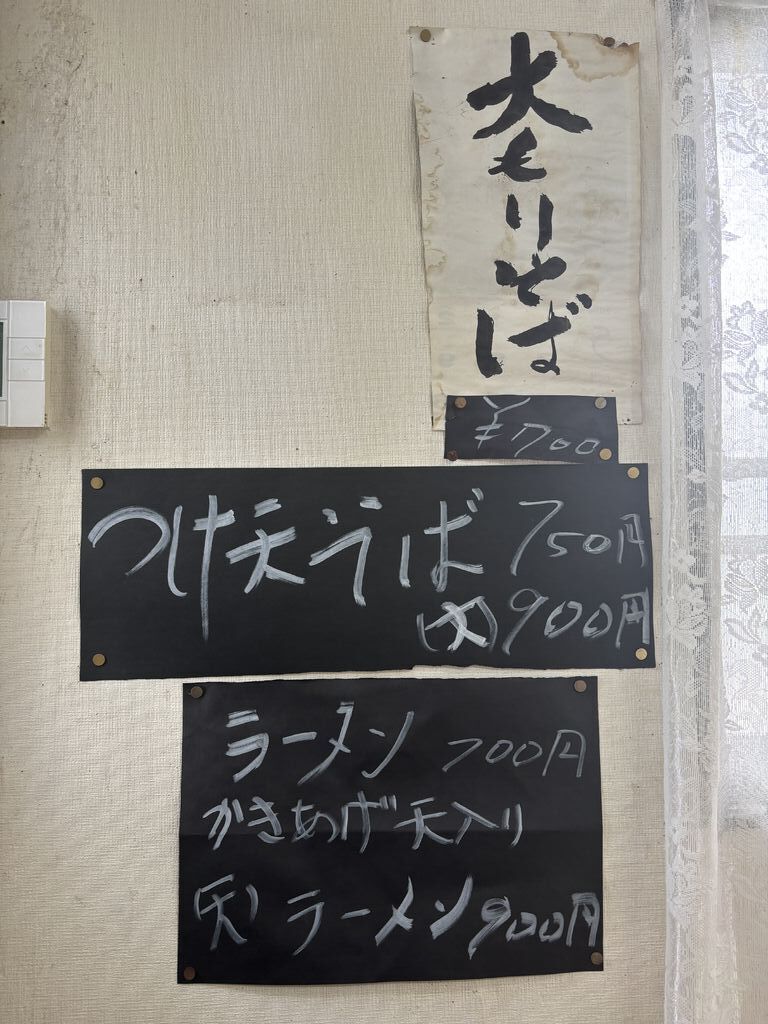 大もりそば
¥700
つけ天そば 750円
(大)900円
ラーメン 700円
かきあげ天入り
(天)ラーメン 900円